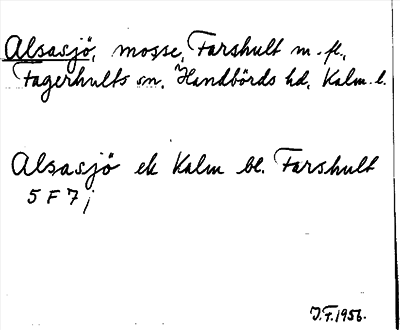 Alsasjö, mosse, Farshult m. fl.,
Fagerhults sn, Handbörds hd, Kalm. l.
Alsasjö ek Kalm bl. Farshult
5 F 7 j
J.F. 1956.